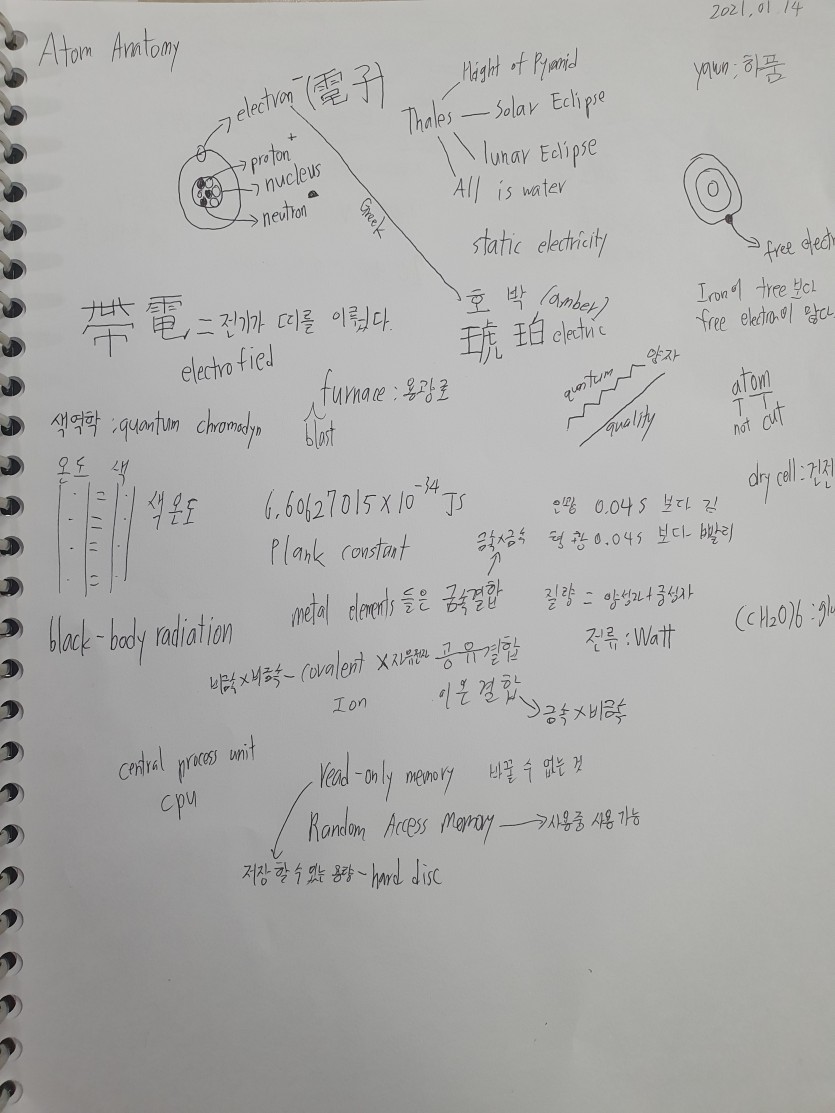 2021.01.14
Atom Anatomy
electron⁻(電子)
proton⁺
nucleus
neutron
Greek
Thales
Hight of Pyramid
Solar Eclipse
lunar Eclipse
All is water
static electricity
yawn : 하품
free elect
Iron이 tree보다
free electron이 많다
帶電 = 전기가 띠를 이뤘다.
electrofied
호박 (amber)
琥珀 electric
furnace : 용광로
blast
색역학 : quantum chromodyn
quantum
양자
quality
atom
not cut
dry cell : 건전
온도 색
색온도
6.60627015×10⁻³⁴ JS
Plank constant
인광 0.04s 보다 김
형광 0.04s 보다 빨리
금속×금속
metal elements 들은 금속결합
질량 = 양성자+중성자
전류 : Watt
(CH2O)6 : glu
black-body radiation
비금속×비금속 - covalent ×자유전자 공유결합
Ion 이온결합
금속×비금속
central process unit
cpu
read-only memory 바꿀 수 없는 것
Random Access Memory → 사용중 사용가능
저장할 수 있는 용량 - hard disc